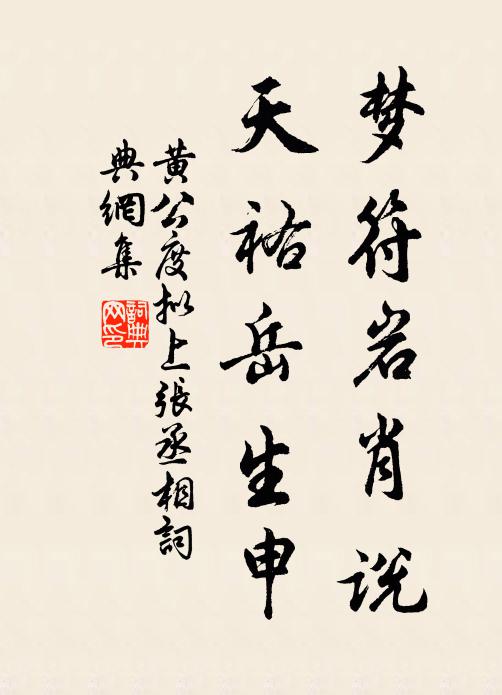 梦符岩肖说
天祐岳生申
黄公度拟上張丞相詞
典網集
詞典网印